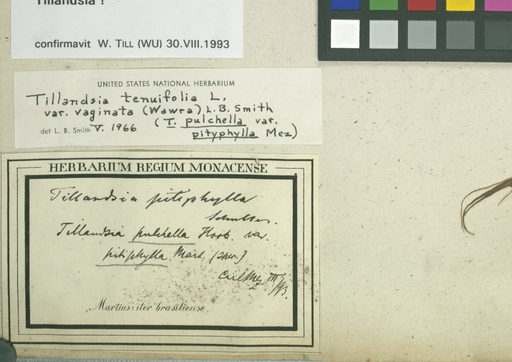 Tillandsia !
confirmavit W. TILL (WU) 30.VIII.1993
UNITED STATES NATIONAL HERBARIUM
Tillandsia tenuifolia L.
var. vaginata (Wawra) L.B. Smith
(T. pulchella var.
det L. B. Smith V. 1966 pityphylla Mez)
HERBARIUM REGIUM MONACENSE
Tillandsia pitiphylla
Schultes.
Tillandsia pulchella Hook. var.
pitiphylla Mart. (spec.)
Carl Mez
Martius: iter brasiliense.